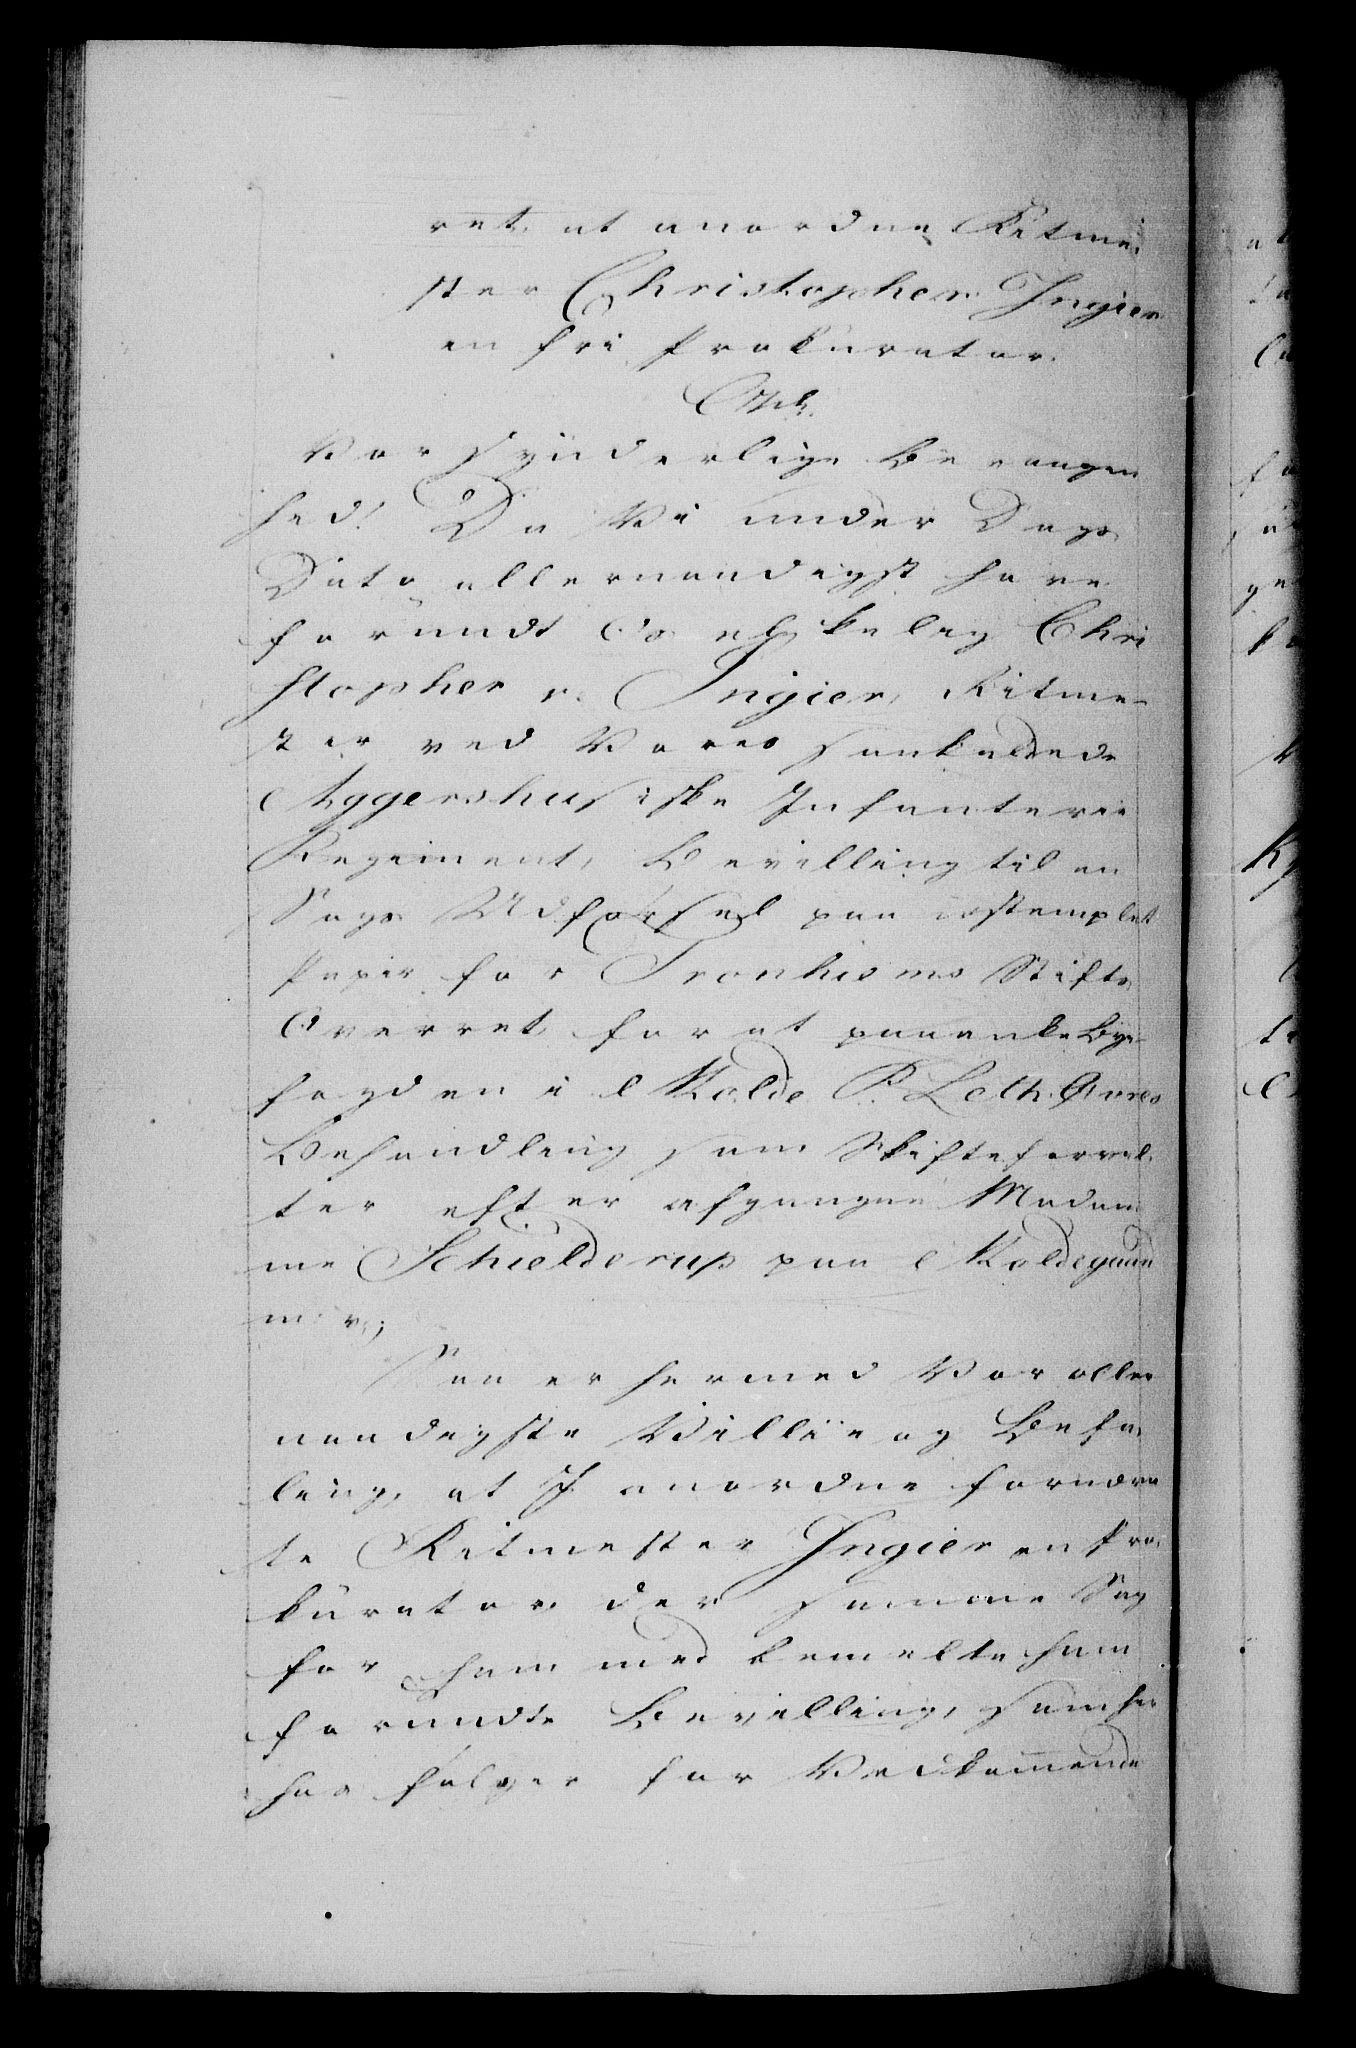 ret, at anordne Ritme¬
ster Christopher Ingier
en fri Prokurator.
Vor synderlige Bevaagen
hed! Da Vi under Dags
Dato allernaadigst have
forundt Os elskelig Chri
stopher v. Ingier, Ritme¬
ster ved Vores saakaldede
Aggershusiske Infanterie
Regiment, Bevilling til en
Sags Udførsel paa ustemplet
Papir for Tronhiems Stifts
Overret, for at paaanke Bye¬
fogden i Molde P. Leth.
Behandling som Skifteforval¬
ter efter afgangne Madam¬
me Schielderup paa Moldegaard
m. v.;
Saa er hermed Vor aller
naadigste Villie og Befa¬
ling, at I anordne fornævn
te Ritmester Ingier en Pro¬
kurator, der samme Sag
for ham med bemeldte ham
forundte Bevilling, som her
hos følger for Vedkommende